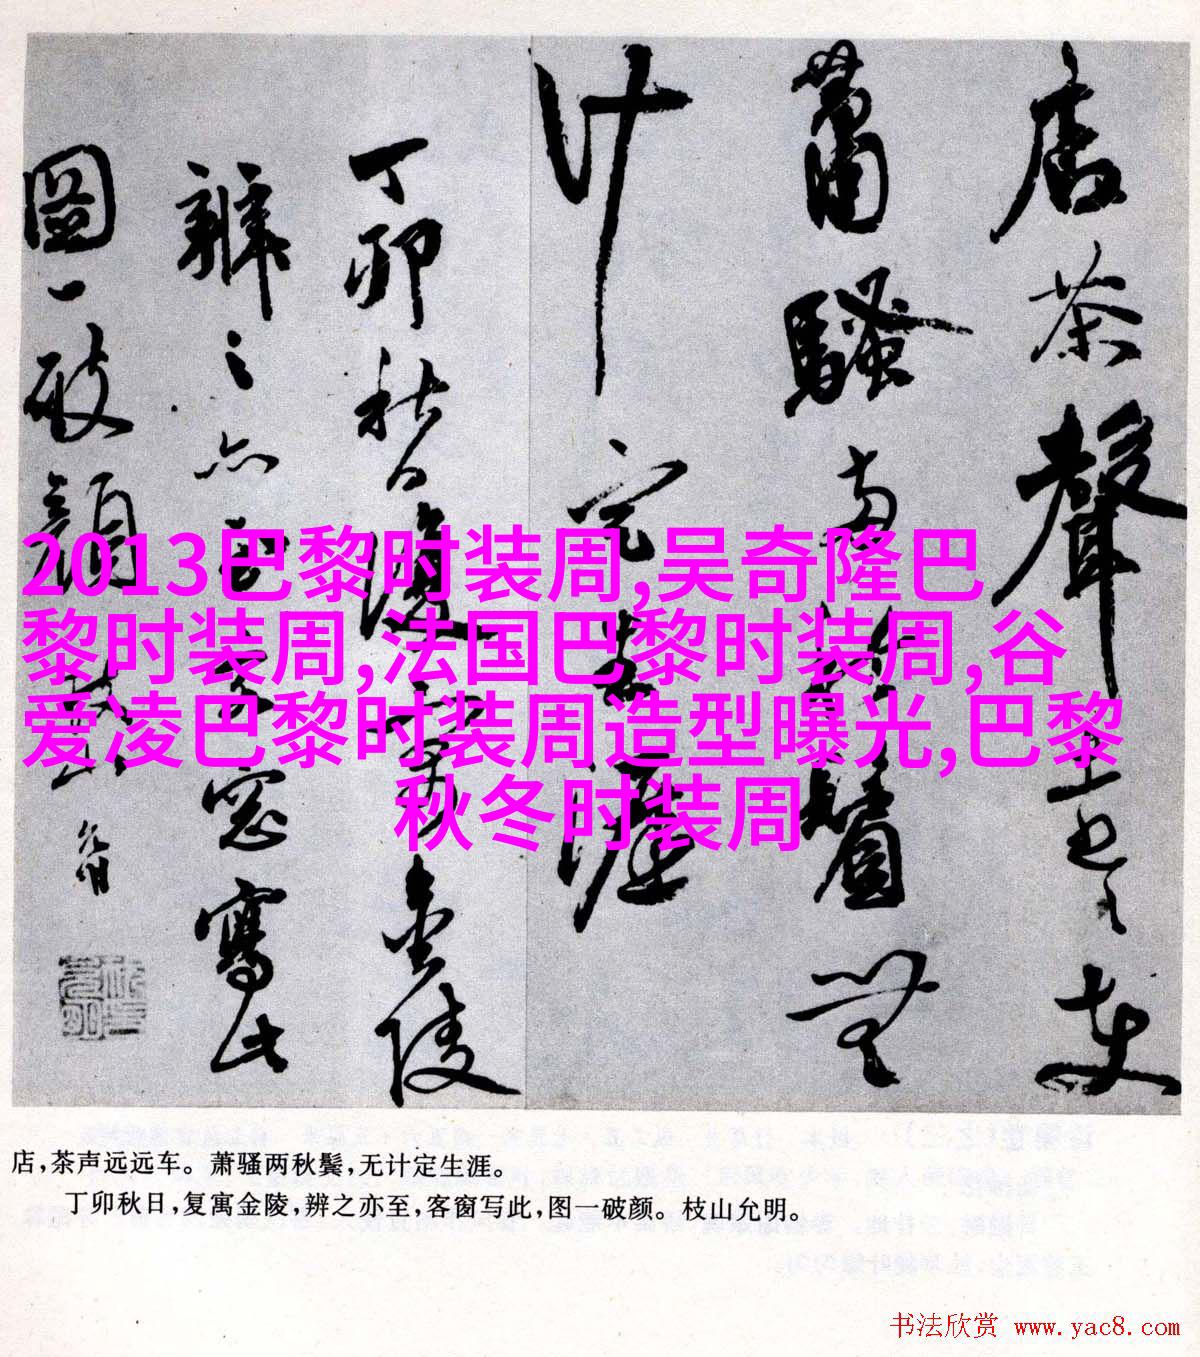 店茶聲遠之車
蕭騷兩秋鬢無
计定生涯
丁卯秋日復寓金陵
辨之亦至客窓寫此
圖一破顏枝山允明
2013巴黎时装周,吴奇隆巴
黎时装周,法国巴黎时装周,谷
爱凌巴黎时装周造型曝光,巴黎
秋冬时装周
店,茶声远远车。萧骚两秋鬓,无计定生涯。
丁卯秋日,复寓金陵,辨之亦至,客窗写此,图一破颜。枝山允明。
书法欣赏 www.yac8.com